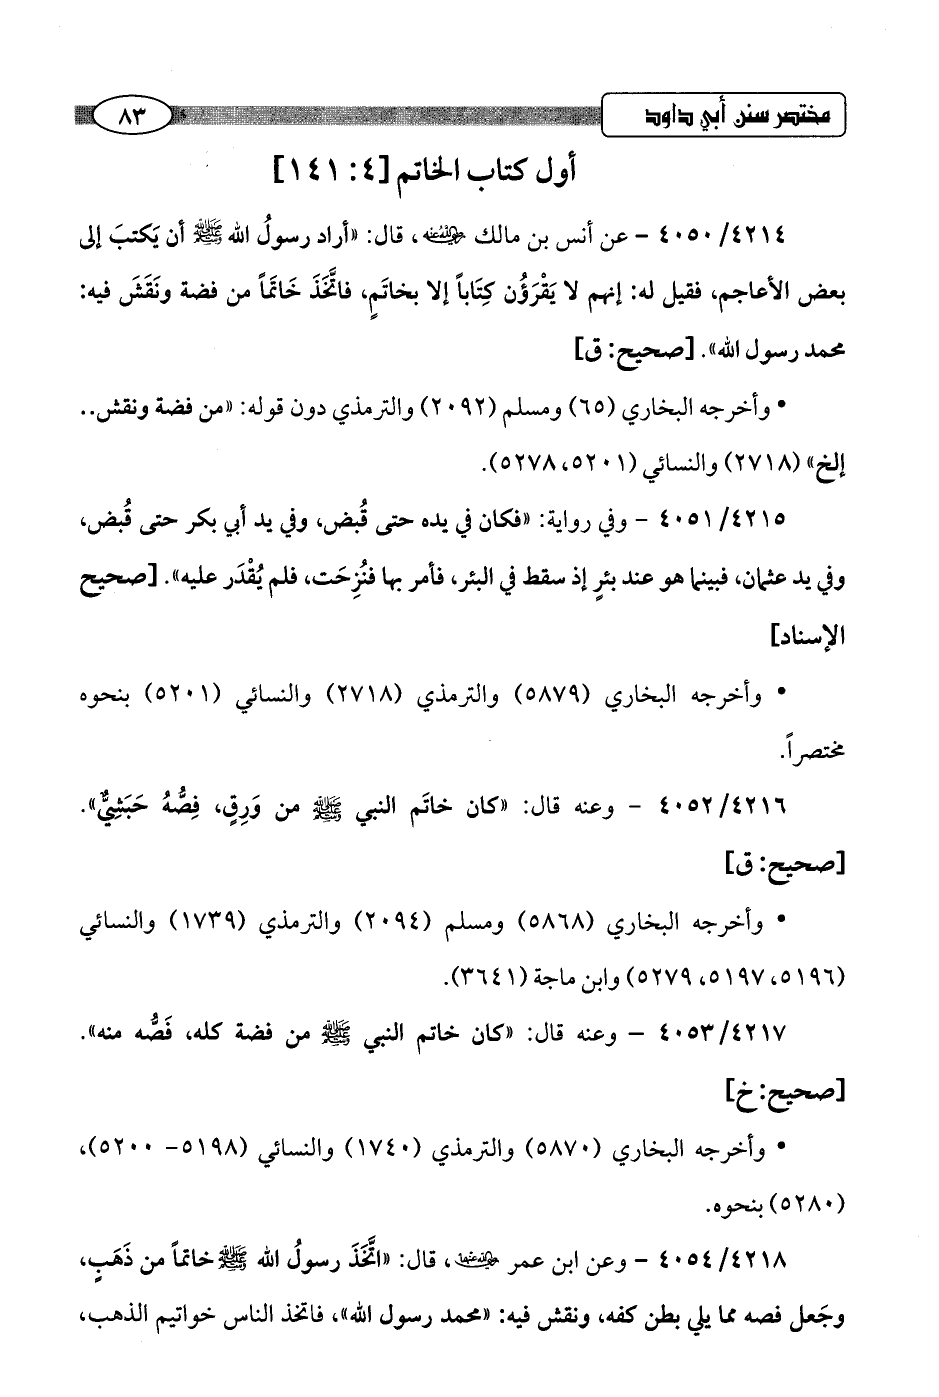 مختصر سنن أبي داود
٨٣
أول كتاب الخاتم [٤: ١٤١]
٤٠٥٠/٤٢١٤ – عن أنس بن مالك رضي الله عنه، قال: «أراد رسولُ الله ﷺ أن يَكتبَ إلى
بعض الأعاجم، فقيل له: إنهم لا يَقْرَؤُن كِتَاباً إلا بخاتَمٍ، فاتَّخَذَ خَاتمَاً من فضة ونَقَشَ فيه:
محمد رسول الله». [صحيح: ق]
• وأخرجه البخاري (٦٥) ومسلم (٢٠٩٢) والترمذي دون قوله: «من فضة ونقش..
إلخ» (٢٧١٨) والنسائي (٥٢٠١، ٥٢٧٨).
٤٠٥١/٤٢١٥ – وفي رواية: «فكان في يده حتى قُبض، وفي يد أبي بكر حتى قُبض،
وفي يد عثمان، فبينما هو عند بئرٍ إذ سقط في البئر، فأمر بها فنُزِحَت، فلم يُقْدَر عليه». [صحيح
الإسناد]
• وأخرجه البخاري (٥٨٧٩) والترمذي (٢٧١٨) والنسائي (٥٢٠١) بنحوه
مختصراً.
٤٠٥٢/٤٢١٦ – وعنه قال: «كان خاتَم النبي ﷺ من وَرِقٍ، فِصُّهُ حَبَشِيٌّ».
[صحيح: ق]
• وأخرجه البخاري (٥٨٦٨) ومسلم (٢٠٩٤) والترمذي (١٧٣٩) والنسائي
(٥١٩٦، ٥١٩٧، ٥٢٧٩) وابن ماجة (٣٦٤١).
٤٠٥٣/٤٢١٧ – وعنه قال: «كان خاتم النبي ﷺ من فضة كله، فَصُّه منه».
[صحيح: خ]
• وأخرجه البخاري (٥٨٧٠) والترمذي (١٧٤٠) والنسائي (٥١٩٨– ٥٢٠٠)،
(٥٢٨٠) بنحوه.
٤٠٥٤/٤٢١٨ – وعن ابن عمر رضي الله عنهما، قال: «اتَّخَذَ رسولُ الله ﷺ خاتماً من ذَهَبٍ،
وجَعل فصه مما يلي بطن كفه، ونقش فيه: «محمد رسول الله»، فاتخذ الناس خواتيم الذهب،